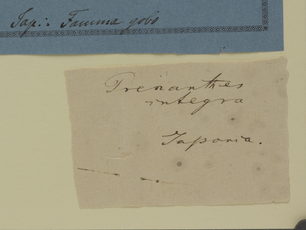 Jap.: Famma gobo
Prenanthes
integra
Japonia.